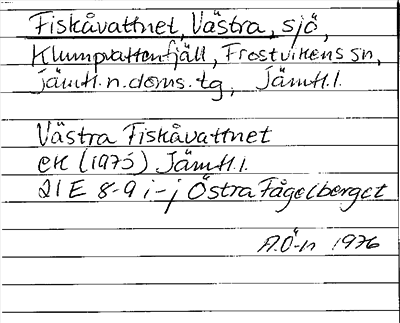 Fiskåvattnet, Västra, sjö,
Klumpvattenfjäll, Frostvikens sn,
Jämtl.n.doms.tg, Jämtl.l.
Västra Fiskåvattnet
ek (1975) Jämtl.l.
21 E 8-9 i-j Östra Fågelberget
A.Ö-n 1976